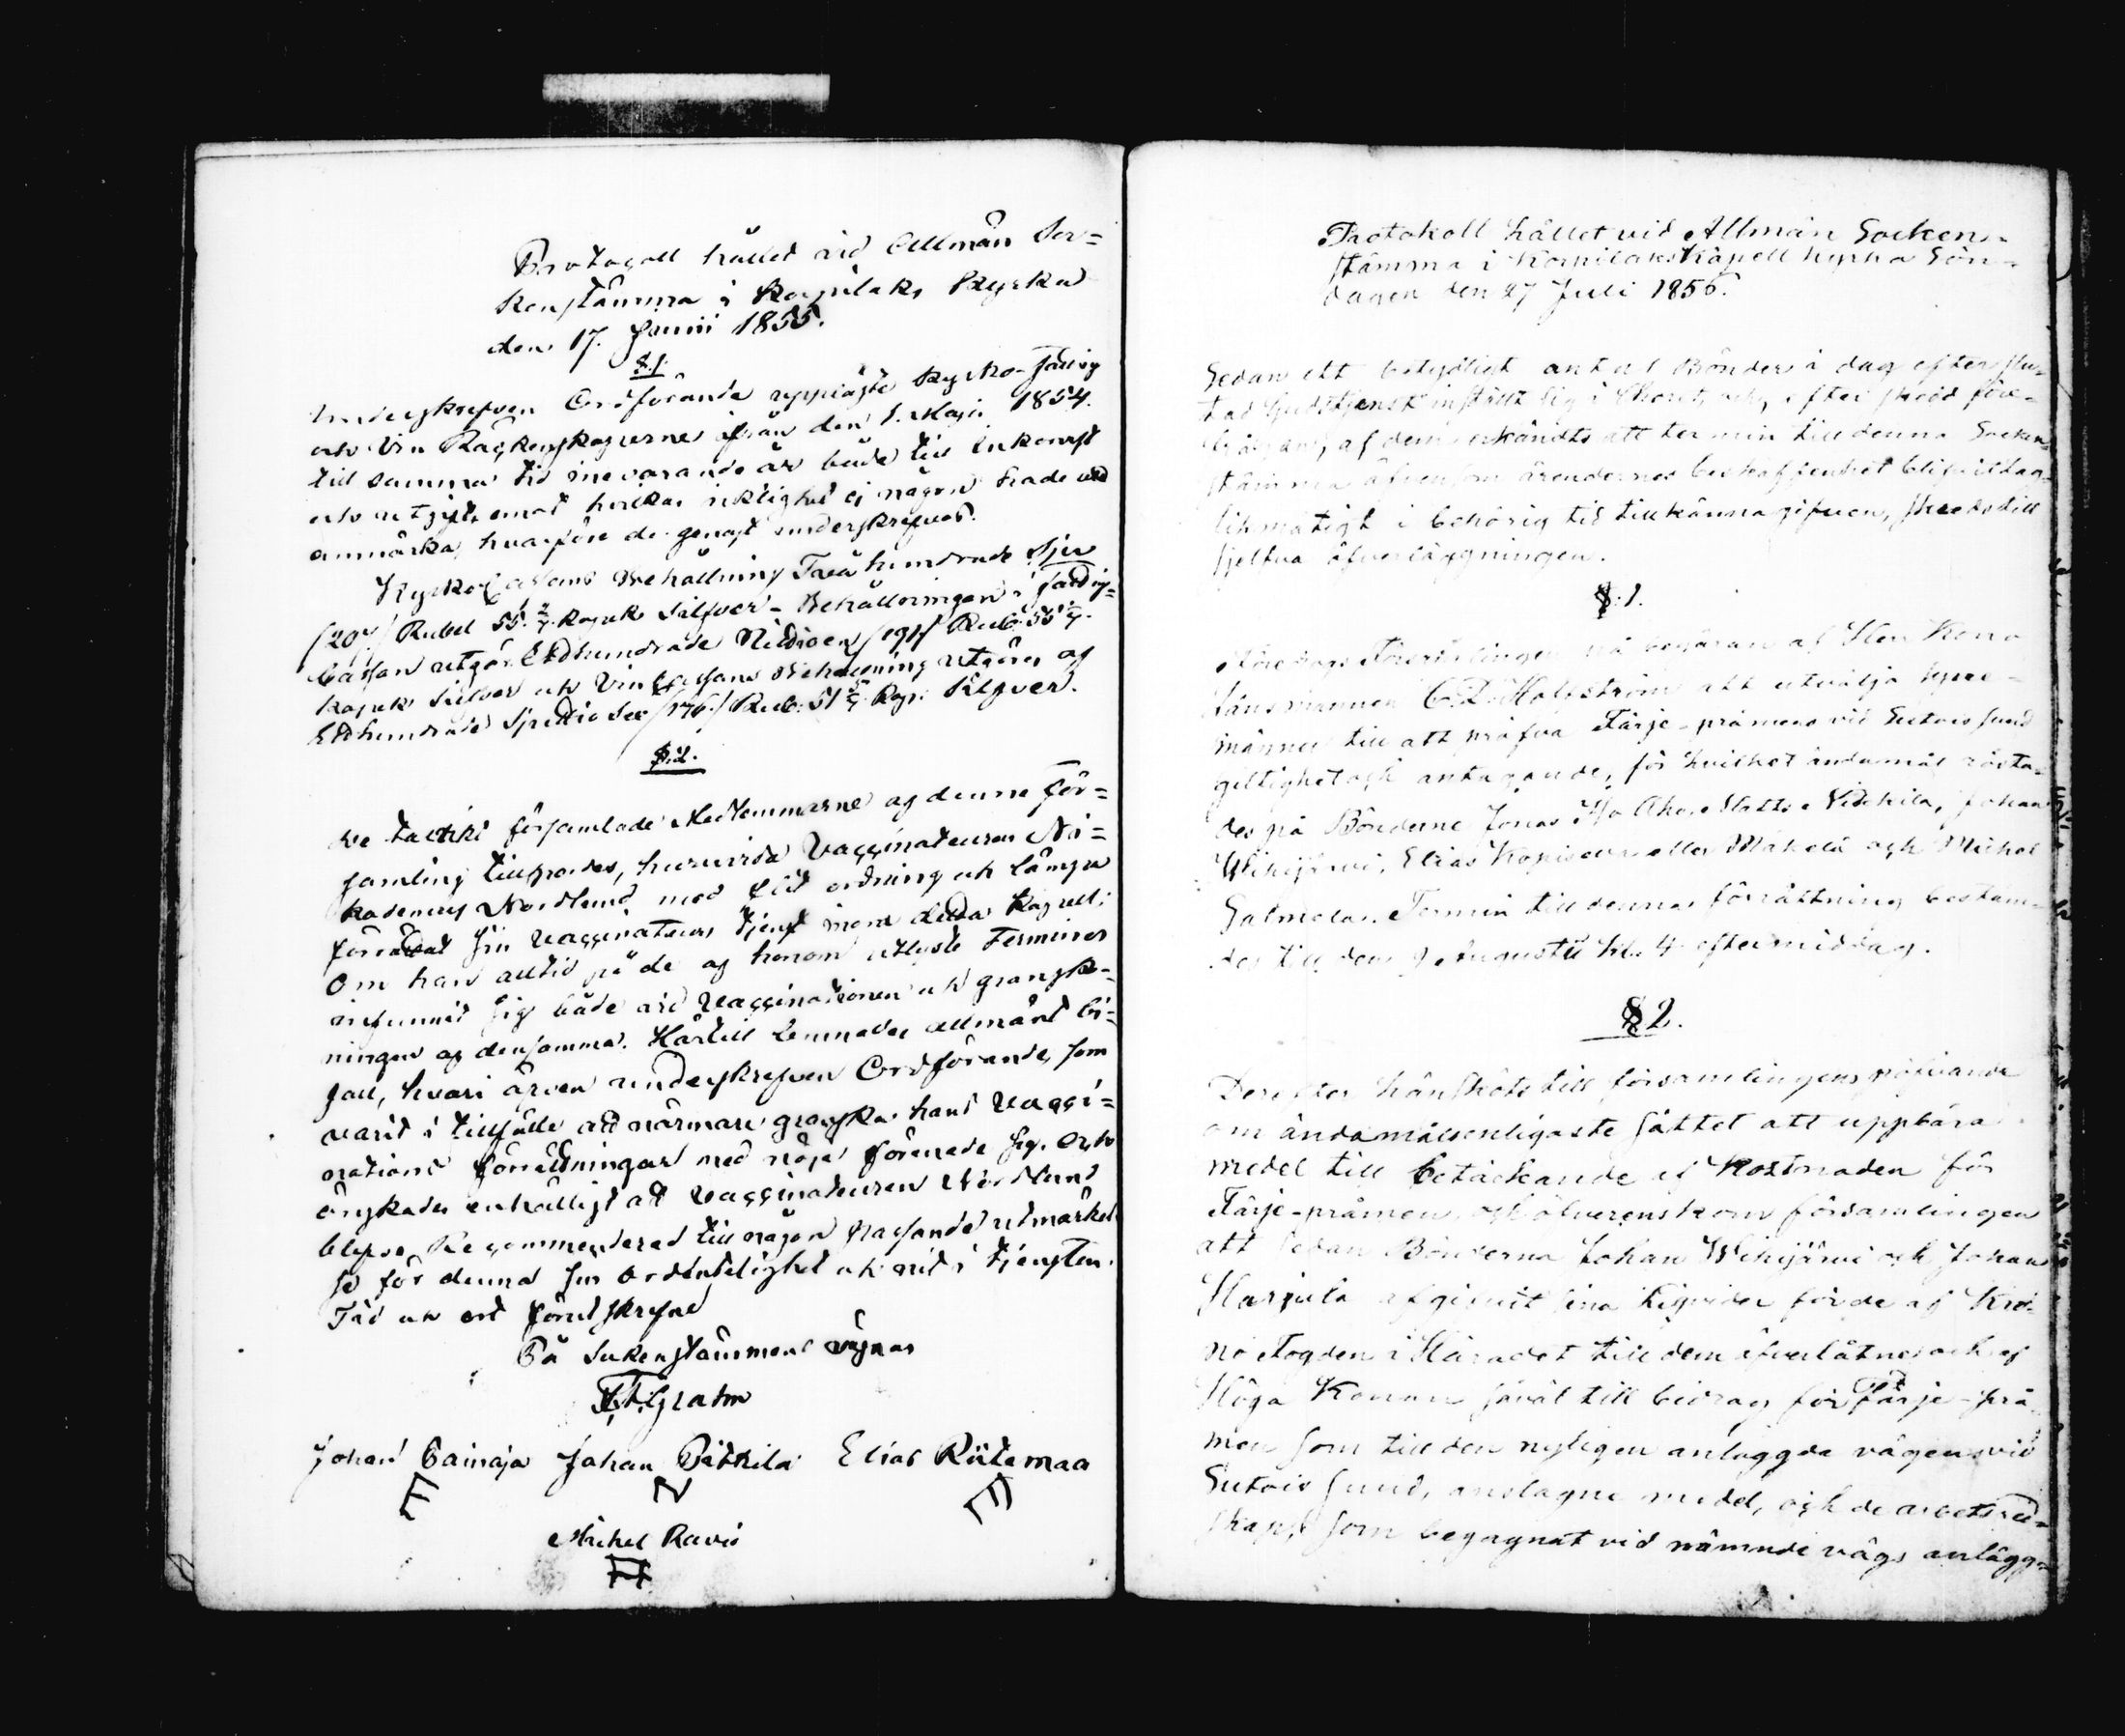 Protocoll hållet vid Allmän Soc=
kenstämma i Korpilaks Kyrka
den 17 Junii 1855.
§.1.
Underskrefven Ordförande uppläste Kyrko- Fattig
och Vin Räckenskaperne ifrån den 1. Maji 1854.
till samma tid innevarande år både till Inkomst
och utgift, emot hvilkas riktighet ej någon hade att
anmärka, hvarföre de genast underskrefvos.
Kyrko Cassans Behållning Två hundrade Sju
/207/ Rubel 55 2/7 Kopek Silfver - Behållningen i Fattig=
Cassan utgör Etthundrade Nittioen /191/ Rub. 55 /7.
Kopek Silfver och Vin Cassans Behållning utgöres af
Etthundrade Sjuttio Sex /176/ Rub. 51 5/7 Kop. Silfver.
§.2.
De talrikt församlade Medlemmarne af denne För=
samling tillspordes, huruvida Vaccinateuren Nå=
kademus Nordlund med flit ordning och lämpa
förrättat sin Vaccinateurs tjenst inom detta Kapell;
Om han alltid på de af honom utlyste Terminer
infunnit sig både vid Vaccinationen och gransk=
ningen af densamma. Härtill lemnades allmänt bi=
fall, hvari äfven underskrefven Ordförande, som
varit i tillfälle att närmare granska hans Vacci=
nations förrättningar med nöje förenade sig. Och
önskades enhälligt att Vaccinateuren Nordlund
blefve Recommenderad till någon passande utmärkel
se för denna sin Ordentelighet och nit i tjensten.
Tid och ort förutskrefne
På Sockenstämmans vägnar
Grahn
Johan Johan Pitkilä Elias Riitamaa
E N
Michel Ravi
H
Protokoll hållet vid Allmän Socken=
stämma i Korpilaks Kapell kyrka Sön=
dagen den 27 Juli 1856.
Sedan ett betydligt antal Bönder i dag efter slu=
tad Gudstjenst inställt sig i Choret, och, efter skedd före=
frågan, af dem erkändts att termin till denna Socken=
stämma äfvensom ärendernes beskaffenhet blifvit lag=
likmätigt i behörig tid tillkännagifven, skreds till
sjelfva öfverläggningen.
§.1.
Föredrogs Församlingen på begäran af Herr Krono
länsmannen C. L. Holmström att utvälja syne=
männer till att pröfva Färje-pråmens vid Sutois sund
giltighet och antagande, för hvilket ändamål rösta=
des på Bönderne Jonas Iso Aho, Matts Pitkilä, Johan
Wihijärvi, Elias Kopisew eller Mäkelä och Michel
Salmela. Termin till denna förrättning bestäm=
des till den 9 Augustii kl. 4 eftermiddag.
§ 2.
Derefter hänsköts till församlingens pröfvande
om ändamålsenligaste sättet att uppbära
medel till betäckande af kostnaden för
Färje-pråmen, och öfverenskom församlingen
att sedan Bönderna Johan Wihijärvi och Johan
Harjula afgifvit sina liqvider för de af Kro=
no fogden i Häradet till dem öfverlåtne och af
Höga Kronan såväl till bidrag för Färje-prå=
men som till den nyligen anlaggda vägen vid
Sutois sund, anslagne medel, och de arbetsred=
skap, som begagnat vid nämnde vägs anlägg=